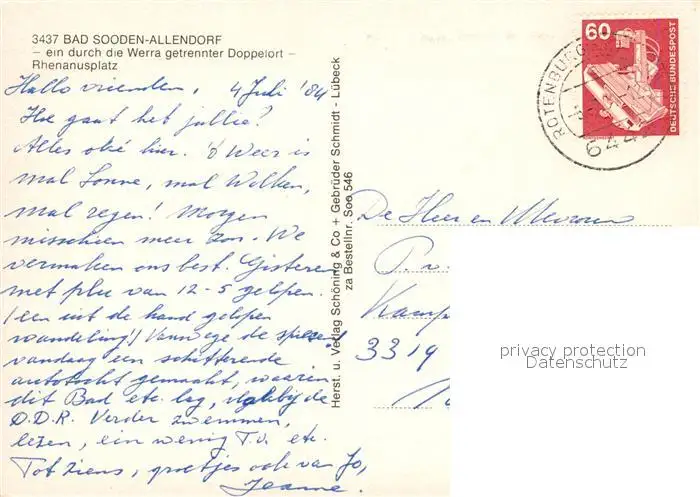 3437 BAD SOODEN-ALLENDORF
– ein durch die Werra getrennter Doppelort –
Rhenanusplatz
Hallo vrienden, 4 Juli '84
Hoe gaat het jullie?
Alles oké hier. 't Weer is
mal Sonne, mal Wolken,
mal regen! Morgen
misschien meer zon. We
vermaken ons best. Gisteren
met plu van 12-5 gelopen.
(een uit de hand gelopen
wandeling!) Vanwege de spieren
vandaag een schitterende
autotocht gemaakt, waarin
dit Bad etc. lag, vlakbij de
D.D.R. Verder zwemmen,
lezen, een wenig T.v. etc.
Tot ziens, groetjes ook van Jo,
Jeanne.
Herst. u. Verlag Schöning & Co + Gebrüder Schmidt - Lübeck
za Bestellnr. Soo 546
60
DEUTSCHE BUNDESPOST
ROTENBURG
644
De Heer en Mevrouw
P. v.
Kamp
3319
privacy protection
Datenschutz